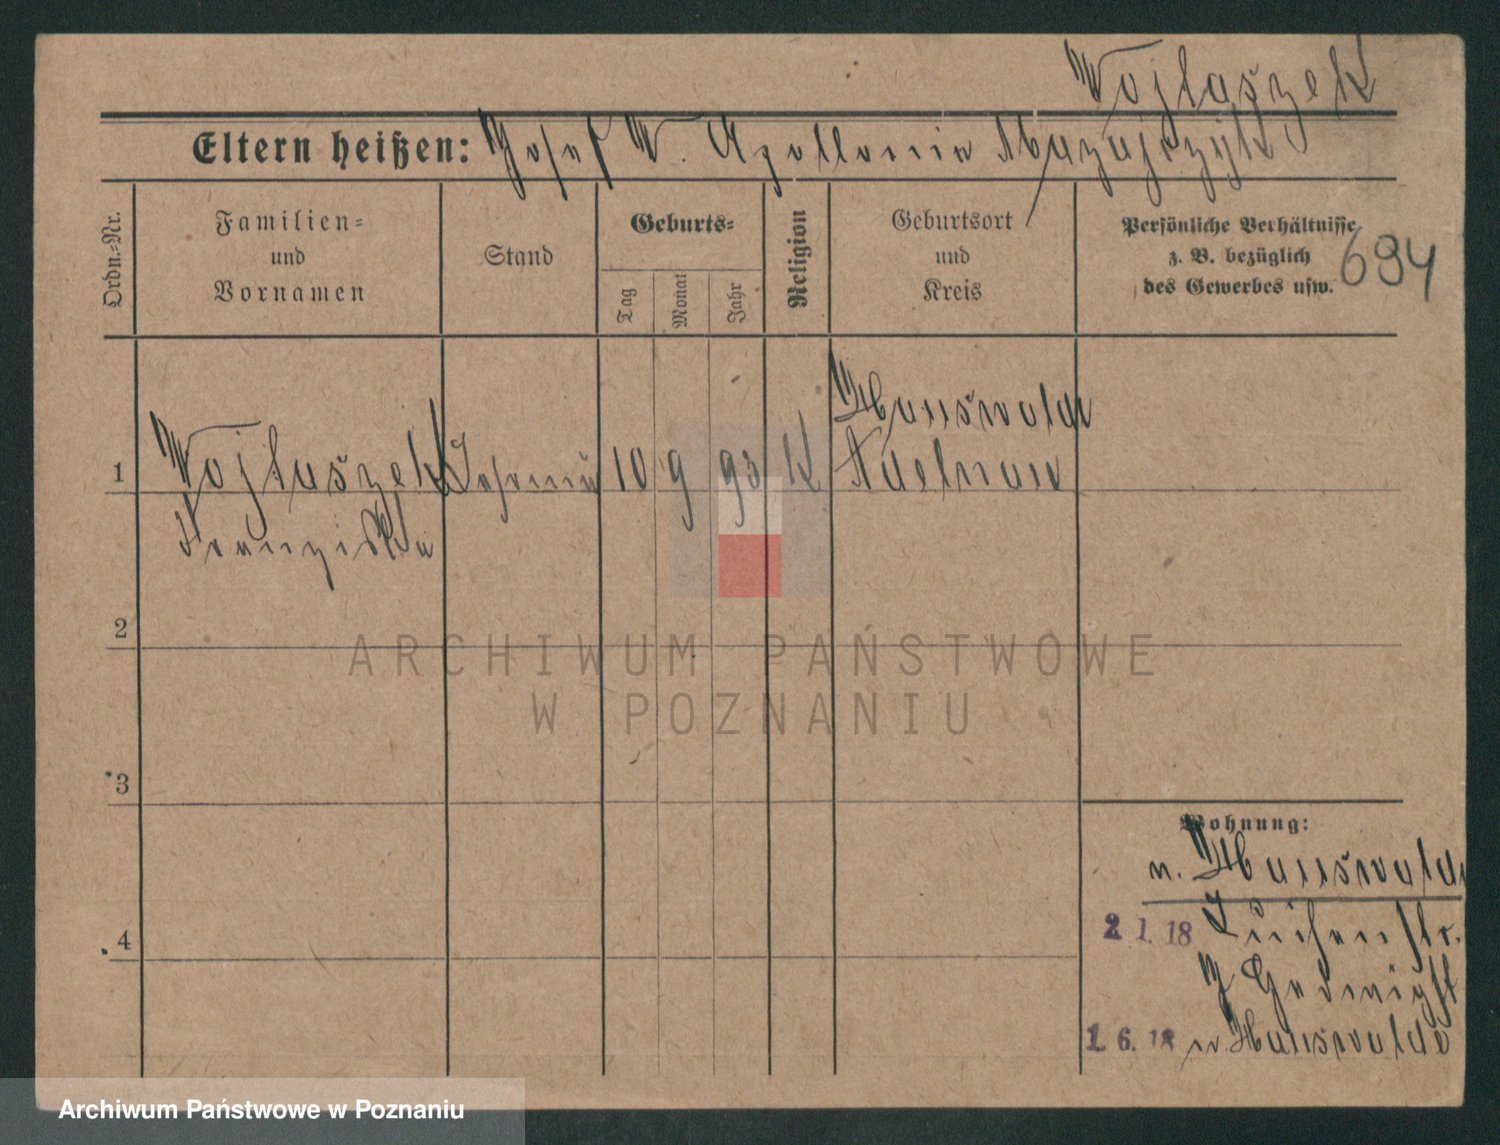 Wojtaszek
Eltern heißen: Josef W. Apollonia
694
Ordn.-Nr.
Familien-
und
Vornamen
Stand
Geburts-
Tag
Monat
Jahr
Religion
Geburtsort
und
Kreis
Persönliche Verhältnisse
z. B. bezüglich
des Gewerbes usw.
Hauswalde
1 Wojtaszek 10 9 93 K Adelnau
Franziska
2
3
4
Wohnung:
n. Hauswalde
2 1. 18
1. 6. 18 n. Hauswalde
ARCHIWUM PAŃSTWOWE
W POZNANIU
Archiwum Państwowe w Poznaniu